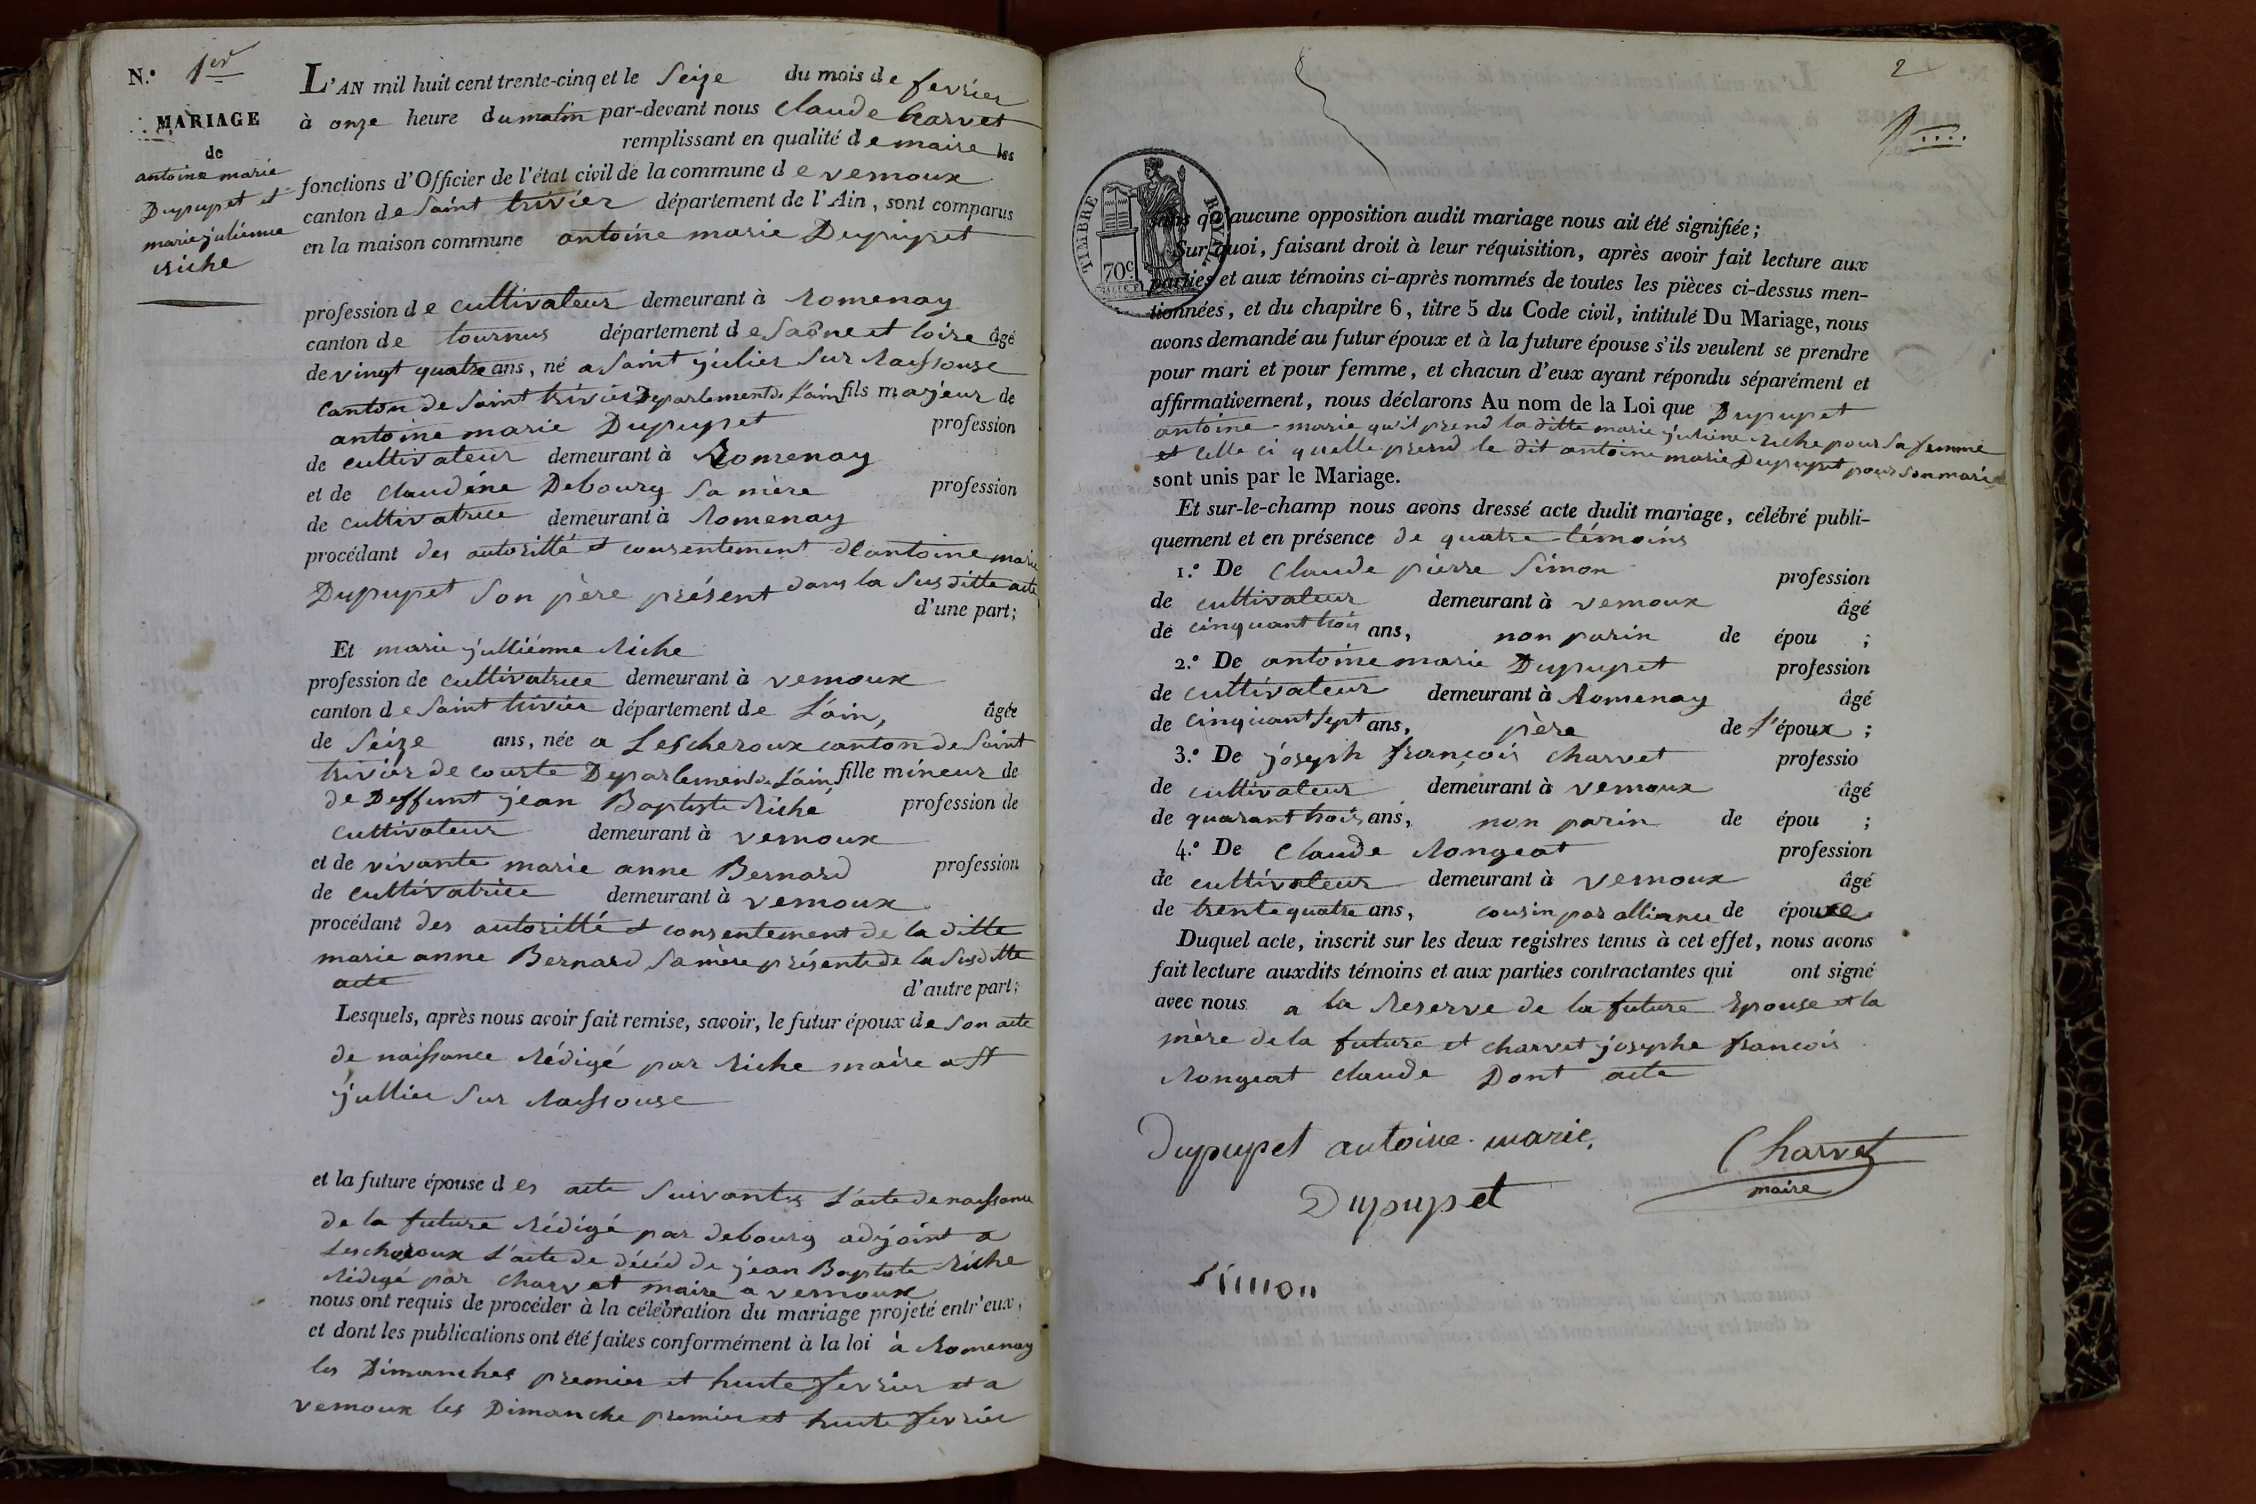 N.° 1er
MARIAGE
de
antoine marie
Dupupet et
marie juliénne
riche
L'AN mil huit cent trente-cinq et le Seize du mois de fevrier
à onze heure du matin par-devant nous Claude Charvet
remplissant en qualité de maire les
fonctions d'Officier de l'état civil de la commune de vernoux
canton de Saint trivier département de l'Ain, sont comparus
en la maison commune antoine marie Dupupet
profession de cultivateur demeurant à Romenay
canton de tournus département de Saône et loire âgé
de vingt quatre ans, né a Saint julier Sur Raissouse
Canton de Saint trivier Departement de L'ain fils majeur de
antoine marie Dupupet profession
de cultivateur demeurant à Romenay
et de Claudine Debourg Sa mère profession
de cultivatrice demeurant à Romenay
procédant des autorité et consentement de antoine marie
Dupupet Son père présent dans la Sus ditte acte
d'une part;
Et marie julliénne Riche
profession de cultivatrice demeurant à vernoux
canton de Saint trivier département de L'ain, âgée
de Seize ans, née a Lescheroux canton de Saint
trivier de courte Departement de L'ain fille mineur de
de Deffunt jean Baptiste Riche profession de
cultivateur demeurant à vernoux
et de vivante marie anne Bernard profession
de cultivatrice demeurant à vernoux
procédant des autorité et consentement de la ditte
marie anne Bernard Sa mère présente de la Susditte
acte d'autre part;
Lesquels, après nous avoir fait remise, savoir, le futur époux de Son acte
de naissance rédigé par Riche maire a St
jullier Sur Raissouse
et la future épouse des acte Suivantes L'acte de naissance
de la future rédigé par debourg adjoint a
Lescheroux L'acte de décéd de jean Baptiste Riche
rédigé par Charvet maire a vernoux
nous ont requis de procéder à la célébration du mariage projeté entr'eux,
et dont les publications ont été faites conformément à la loi à Romenay
les Dimanches premier et huite fevrier et a
vernoux les Dimanche premier et huite fevrier
2
TIMBRE ROYAL
70c
sans qu'aucune opposition audit mariage nous ait été signifiée;
Sur quoi, faisant droit à leur réquisition, après avoir fait lecture aux
parties et aux témoins ci-après nommés de toutes les pièces ci-dessus men-
tionnées, et du chapitre 6, titre 5 du Code civil, intitulé Du Mariage, nous
avons demandé au futur époux et à la future épouse s'ils veulent se prendre
pour mari et pour femme, et chacun d'eux ayant répondu séparément et
affirmativement, nous déclarons Au nom de la Loi que Dupupet
antoine marie qu'il prend la ditte marie juliéne riche pour Sa femme
et Celle ci quelle prend le dit antoine marie Dupupet pour Son mari
sont unis par le Mariage.
Et sur-le-champ nous avons dressé acte dudit mariage, célébré publi-
quement et en présence de quatre témoins
1.° De Claude pierre Simon profession
de cultivateur demeurant à vernoux âgé
de cinquant trois ans, non parin de épou ;
2.° De antoine marie Dupupet profession
de cultivateur demeurant à Romenay âgé
de cinquant Sept ans, père de l'époux ;
3.° De joseph françois Charvet professio
de cultivateur demeurant à vernoux âgé
de quarant trois ans, non parin de épou ;
4.° De Claude Rongeat profession
de cultivateur demeurant à vernoux âgé
de trente quatre ans, cousin par alliance de épouse
Duquel acte, inscrit sur les deux registres tenus à cet effet, nous avons
fait lecture auxdits témoins et aux parties contractantes qui ont signé
avec nous a la Reserve de la future Epouse et la
mère de la future et Charvet josephe françois
Rongeat Claude Dont acte
Dupupet antoine marie,
Charvet
maire
Dupupet
Simon